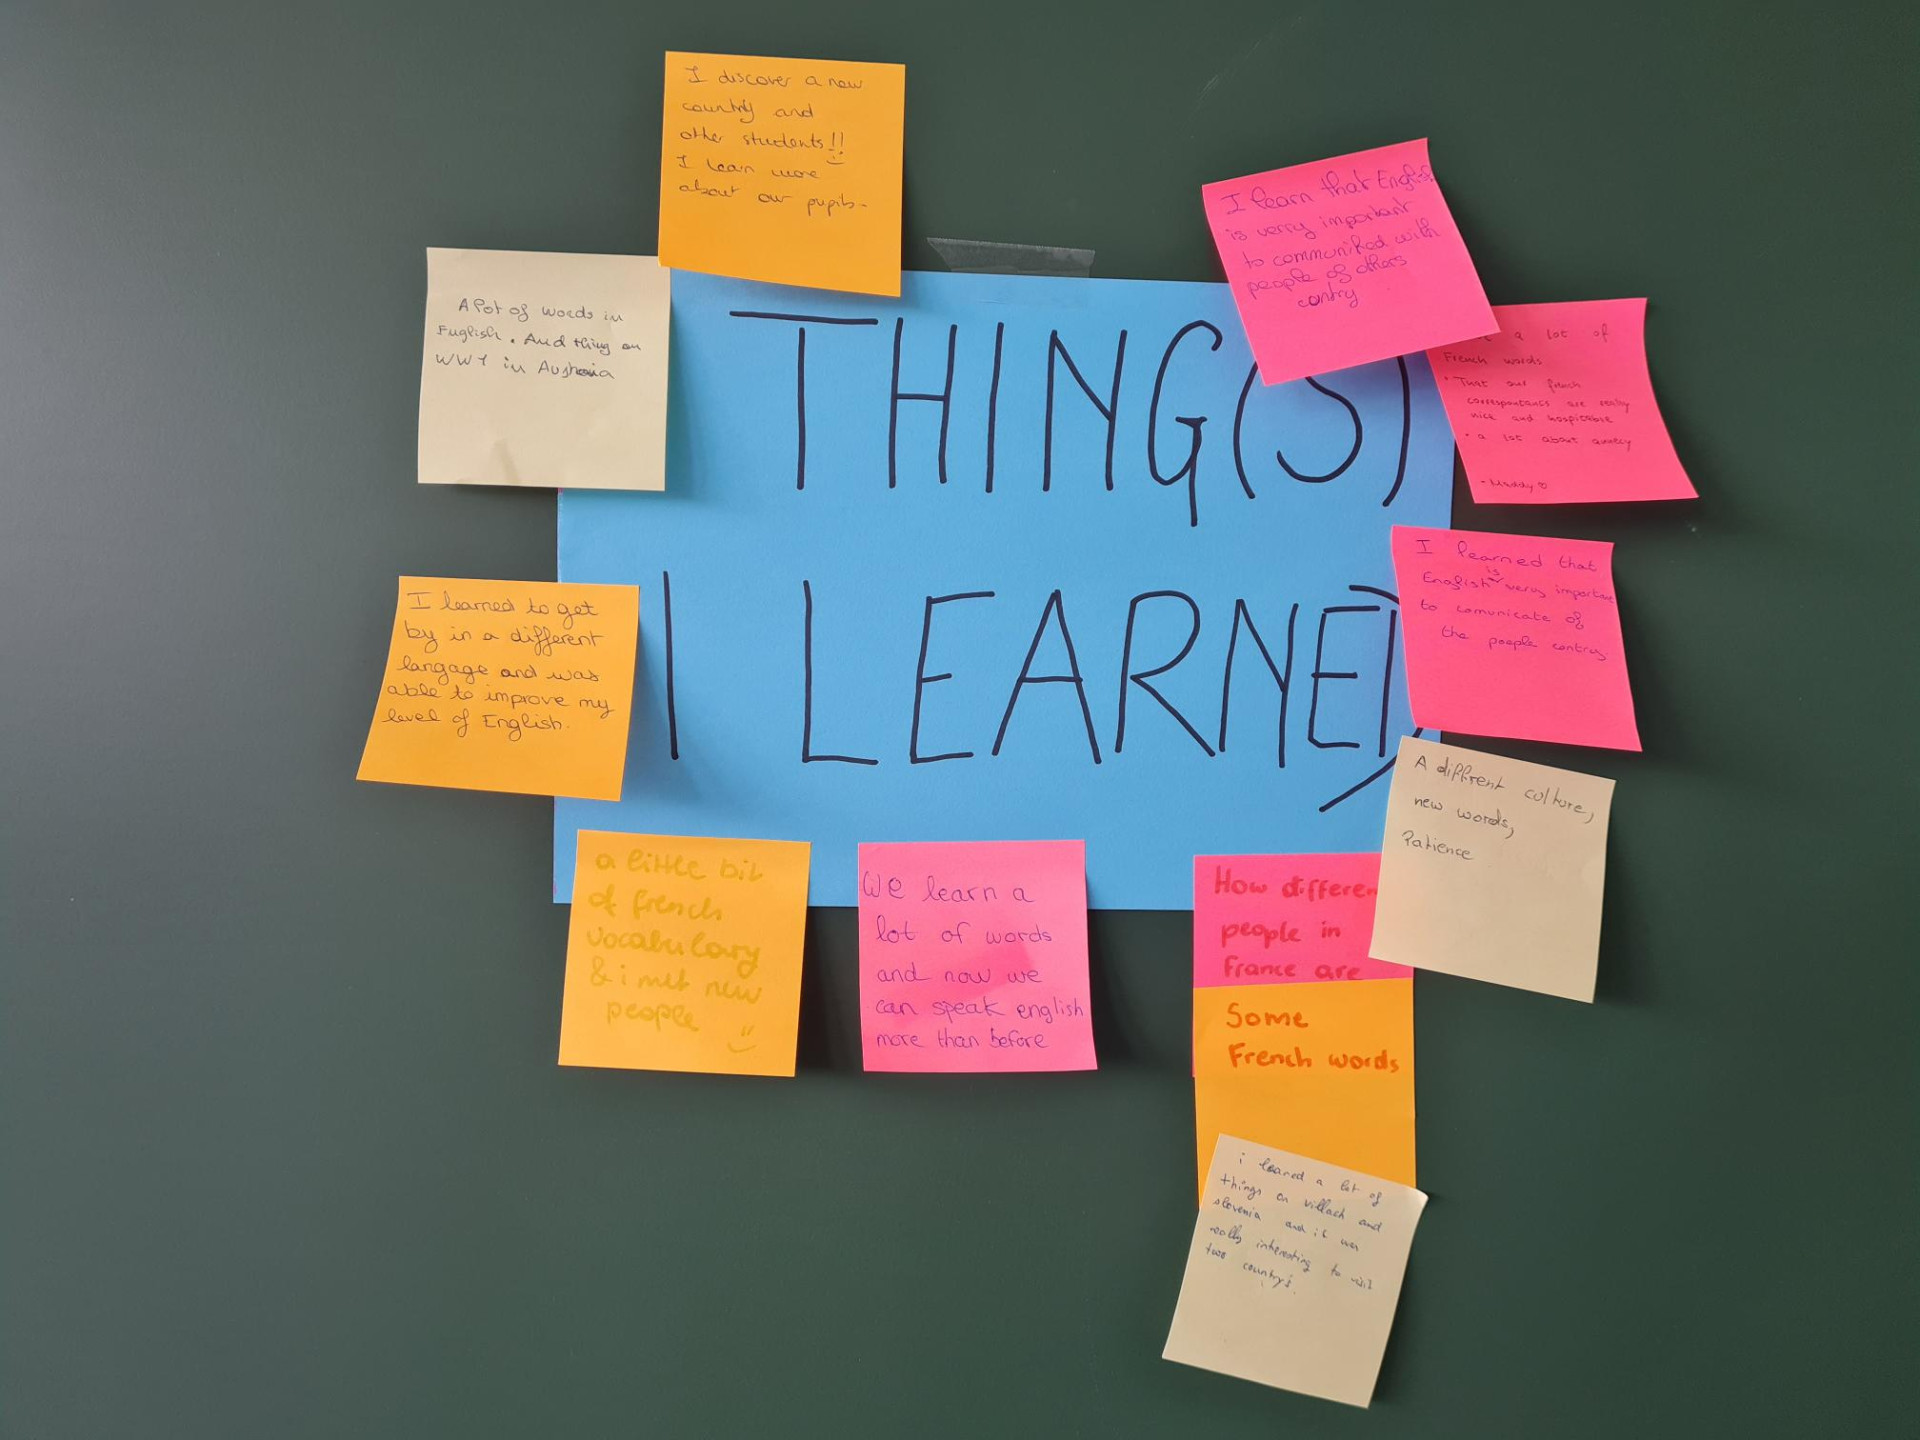 I discover a new
country and
other students!!
I learn more
about our pupils.
A lot of words in
English. And thing on
WW1 in Austria
I learn that English
is verry important
to communiked with
people of others
contry
THING(S)
I LEARNED
a lot of
French words
• That our french
correspondants are really
nice and hospitable
• a lot about annecy
- Maddy
I learned to get
by in a different
langage and was
able to improve my
level of English.
I learned that
is
English very important
to comunicate of
the people contry.
A different culture,
new words,
Patience
a little bit
of french
vocabulary
& i met new
people
We learn a
lot of words
and now we
can speak english
more than before
How differen
people in
france are
Some
French words
i learned a lot of
things on villach and
slovenia and it was
really interesting to visit
two country's.